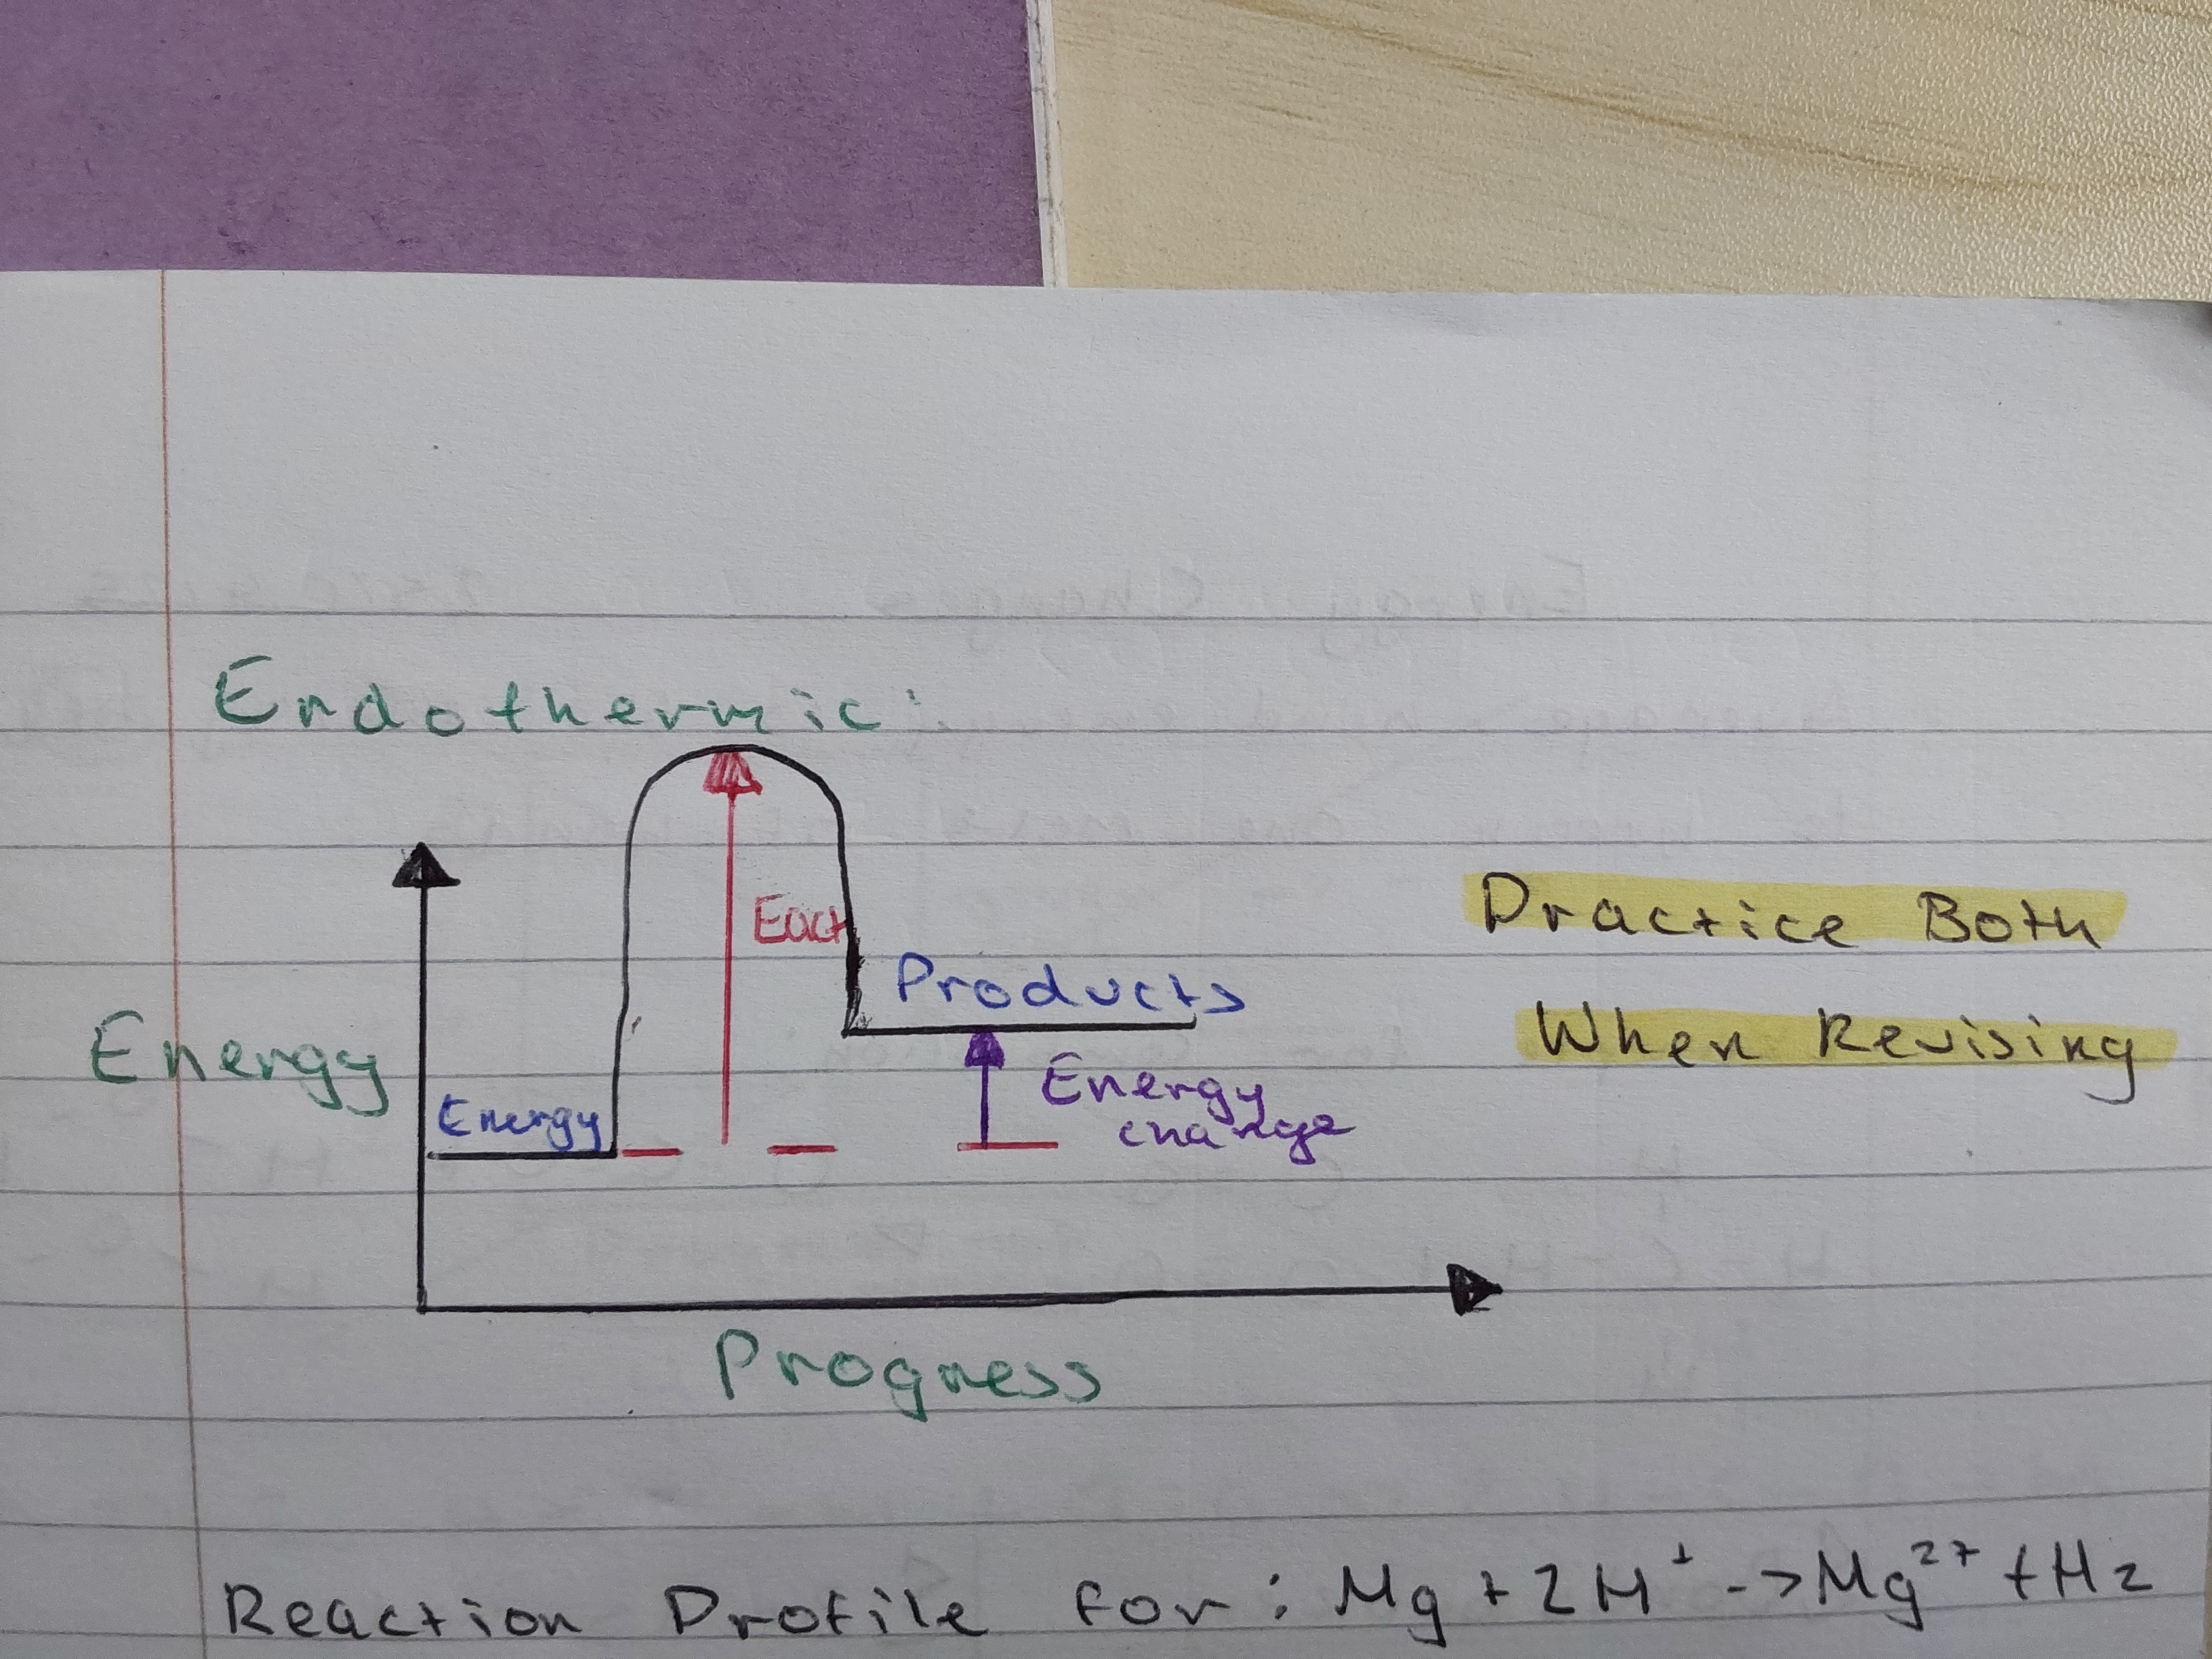 Endothermic:
Eact
Practice Both
Products
When Revising
Energy
Energy
change
Energy
Progress
Reaction Profile for: Mg + 2H⁺ -> Mg²⁺ + H₂